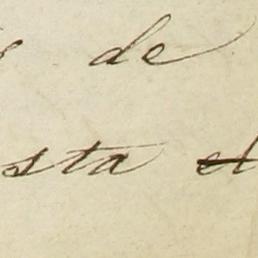 de
sta el